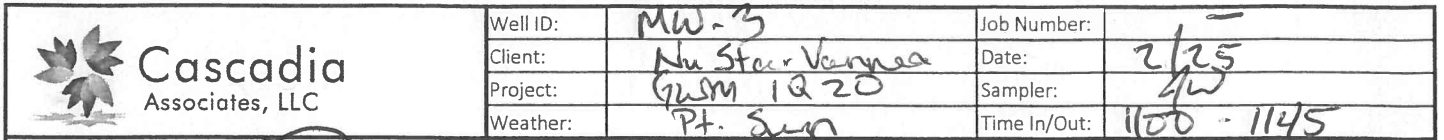 Cascadia
Associates, LLC
Well ID: MW-3 Job Number: —
Client: Nu Star Date: 2/25
Project: GWM 1Q20 Sampler:
Weather: Pt. Sun Time In/Out: 1100 - 1145